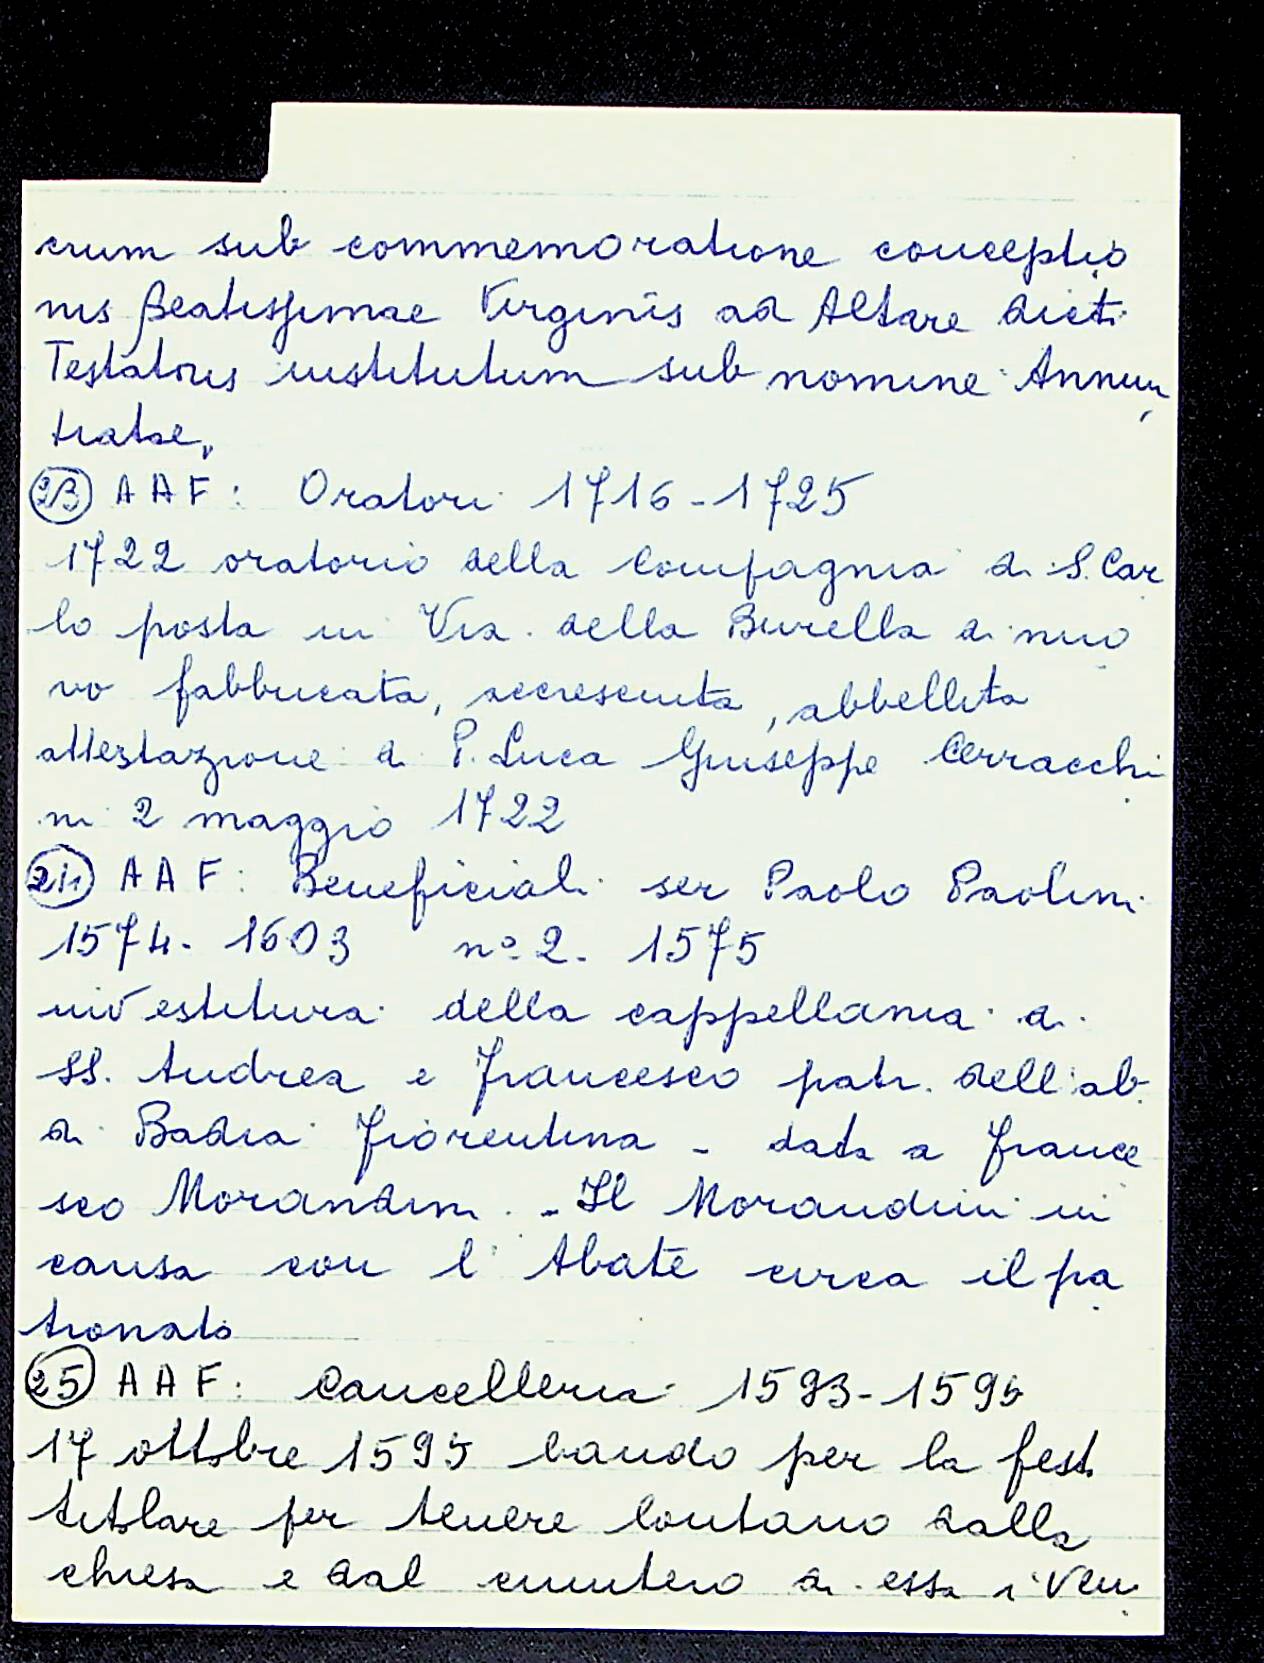 crum sub commemoratione conceptio
nis Beatissimae Virginis ad Altare dicti
Testatoris institutum sub nomine Annun
tiatae,
23 AAF: Oratori 1716-1725
1722 oratorio della Compagnia di S. Car
lo posta in Via della Burella di nuo
vo fabbricata, accresciuta, abbellita
attestazione di P. Luca Giuseppe Cerracchi
ni 2 maggio 1722
24 AAF: Beneficiali ser Paolo Paolini
1574-1603 no 2. 1575
investitura della cappellania di
SS. Andrea e Francesco patr. dell'ab.
di Badia Fiorentina - data a France
sco Morandini. - Il Morandini in
causa con l'Abate circa il pa
tronato
25 AAF: Cancelleria 1593-1595
17 ottobre 1595 bando per la fest.
titolare per tenere lontano dalla
chiesa e dal cimitero di essa i ven